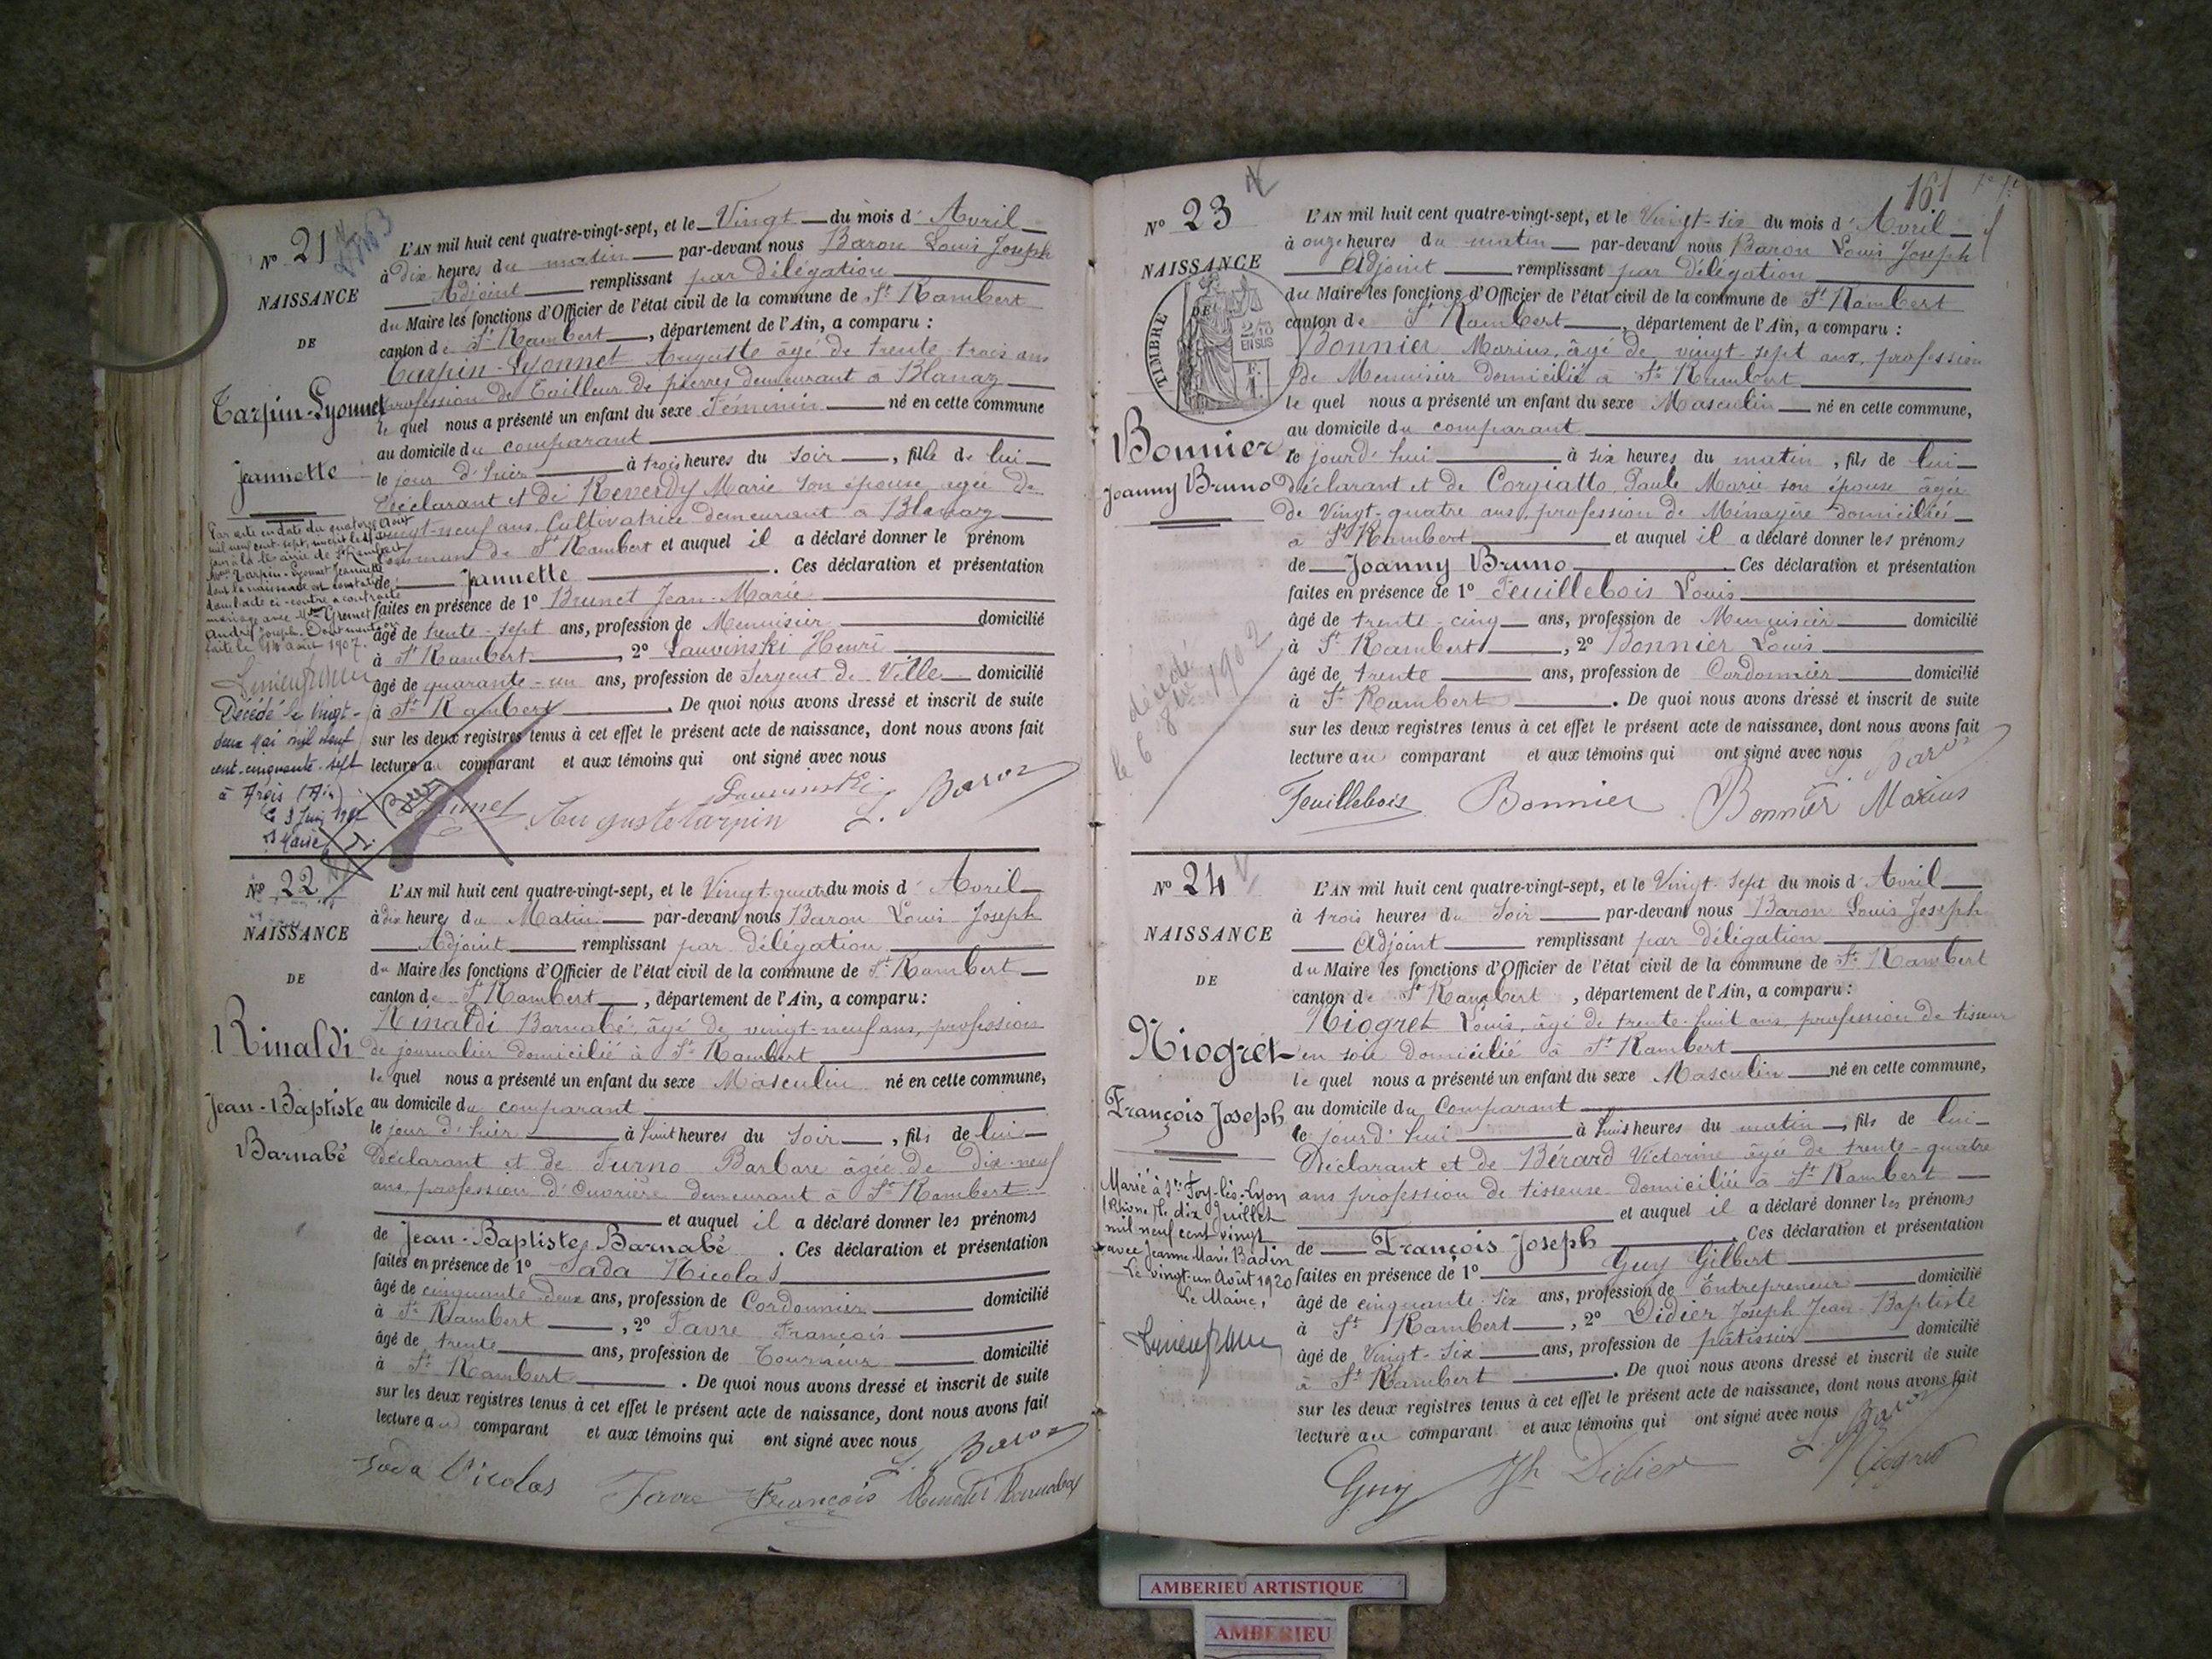 Nº 21
NAISSANCE
DE
Tarpin-Lyonnet
Jeannette
Par acte en date du quatorze Août
mil neuf cent sept, inscrit le
jour à la mairie de St Rambert
Tarpin-Lyonnet Jeannette
dont la naissance est constatée
dans l'acte ci-contre a contracté
mariage avec Mr Gremet
André Joseph. Dont mention
faite le 14 août 1907.
Décédé le vingt-
deux Mai mil neuf
cent-cinquante-sept
à Argis (Ain)
Le 3 Juin 1957
Le Maire
L'AN mil huit cent quatre-vingt-sept, et le Vingt du mois d'Avril
à dix heures du matin par-devant nous Baron Louis Joseph
Adjoint remplissant par délégation
du Maire les fonctions d'Officier de l'état civil de la commune de St Rambert
canton de St Rambert, département de l'Ain, a comparu :
Tarpin-Lyonnet Auguste âgé de trente trois ans
profession de Tailleur de pierres demeurant à Blanaz
le quel nous a présenté un enfant du sexe Féminin né en cette commune
au domicile du comparant
le jour d'hier à trois heures du soir, fille de lui
Déclarant et de Reverdy Marie son épouse agée de
vingt-neuf ans Cultivatrice demeurant à Blanaz
commune de St Rambert et auquel il a déclaré donner le prénom
de Jeannette. Ces déclaration et présentation
faites en présence de 1º Brunet Jean-Marie
âgé de trente-sept ans, profession de Menuisier domicilié
à St Rambert, 2º Lauvinski Henri
âgé de quarante-un ans, profession de Sergent de Ville domicilié
à St Rambert. De quoi nous avons dressé et inscrit de suite
sur les deux registres tenus à cet effet le présent acte de naissance, dont nous avons fait
lecture au comparant et aux témoins qui ont signé avec nous
Brunet Auguste tarpin Lauvinski L. Baron
Nº 22
NAISSANCE
DE
Rinaldi
Jean-Baptiste
Barnabé
L'AN mil huit cent quatre-vingt-sept, et le Vingt-quatre du mois d'Avril
à dix heures du Matin par-devant nous Baron Louis Joseph
Adjoint remplissant par délégation
du Maire les fonctions d'Officier de l'état civil de la commune de St Rambert
canton de St Rambert, département de l'Ain, a comparu :
Rinaldi Barnabé âgé de vingt-neuf ans, profession
de journalier domicilié à St Rambert
le quel nous a présenté un enfant du sexe Masculin né en cette commune,
au domicile du comparant
le jour d'hier à huit heures du soir, fils de lui
Déclarant et de Turno Barbare âgée de dix-neuf
ans, profession d'ouvrière demeurant à St Rambert
et auquel il a déclaré donner les prénoms
de Jean-Baptiste, Barnabé. Ces déclaration et présentation
faites en présence de 1º Sada Nicolas
âgé de cinquante deux ans, profession de Cordonnier domicilié
à St Rambert, 2º Favre François
âgé de trente ans, profession de Tourneur domicilié
à St Rambert. De quoi nous avons dressé et inscrit de suite
sur les deux registres tenus à cet effet le présent acte de naissance, dont nous avons fait
lecture au comparant et aux témoins qui ont signé avec nous
L. Baron
Sada Nicolas Favre François Rinaldi Barnabé
161
Nº 23
NAISSANCE
TIMBRE
2/10
EN SUS
Bonnier
Joanny Bruno
décédé
le 6 8bre 1902
L'AN mil huit cent quatre-vingt-sept, et le Vingt-six du mois d'Avril
à onze heures du matin par-devant nous Baron Louis Joseph
Adjoint remplissant par délégation
du Maire les fonctions d'Officier de l'état civil de la commune de St Rambert
canton de St Rambert, département de l'Ain, a comparu :
Bonnier Marius, âgé de vingt-sept ans, profession
de Menuisier domicilié à St Rambert
le quel nous a présenté un enfant du sexe Masculin né en cette commune,
au domicile du comparant
le jourd'hui à six heures du matin, fils de lui
déclarant et de Corgiatto Paule Marie son épouse âgée
de Vingt-quatre ans, profession de Ménagère domiciliés
à St Rambert et auquel il a déclaré donner les prénoms
de Joanny Bruno. Ces déclaration et présentation
faites en présence de 1º Feuillebois Louis
âgé de trente-cinq ans, profession de Menuisier domicilié
à St Rambert, 2º Bonnier Louis
âgé de trente ans, profession de Cordonnier domicilié
à St Rambert. De quoi nous avons dressé et inscrit de suite
sur les deux registres tenus à cet effet le présent acte de naissance, dont nous avons fait
lecture au comparant et aux témoins qui ont signé avec nous
L. Baron
Feuillebois Bonnier Bonnier Marius
Nº 24
NAISSANCE
DE
Niogret
François Joseph
Marié à Ste Foy-lès-Lyon
(Rhône) le dix Juillet
mil neuf cent vingt
avec Jeanne Marie Badin
Le vingt-un Août 1920
Le Maire,
L'AN mil huit cent quatre-vingt-sept, et le Vingt-sept du mois d'Avril
à trois heures du Soir par-devant nous Baron Louis Joseph
Adjoint remplissant par délégation
du Maire les fonctions d'Officier de l'état civil de la commune de St Rambert
canton de St Rambert, département de l'Ain, a comparu :
Niogret Louis, âgé de trente-huit ans, profession de tisseur
en soie domicilié à St Rambert
le quel nous a présenté un enfant du sexe Masculin né en cette commune,
au domicile du Comparant
le jourd'hui à huit heures du matin, fils de lui
Déclarant et de Bérard Victorine âgée de trente-quatre
ans profession de tisseuse domiciliée à St Rambert
et auquel il a déclaré donner les prénoms
de François Joseph. Ces déclaration et présentation
faites en présence de 1º Guy Gilbert
âgé de cinquante-six ans, profession de Entrepreneur domicilié
à St Rambert, 2º Didier Joseph Jean-Baptiste
âgé de Vingt-six ans, profession de pâtissier domicilié
à St Rambert. De quoi nous avons dressé et inscrit de suite
sur les deux registres tenus à cet effet le présent acte de naissance, dont nous avons fait
lecture au comparant et aux témoins qui ont signé avec nous
L. Baron
Guy Jh Didier Niogret
AMBERIEU ARTISTIQUE
AMBERIEU